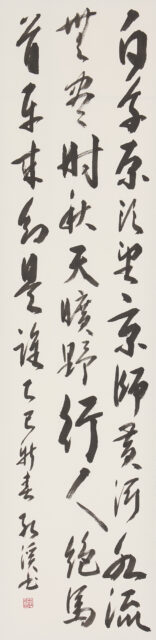 白草原頭望京師黃河水流
無盡時秋天曠野行人絕馬
首東來知是誰乙巳新春